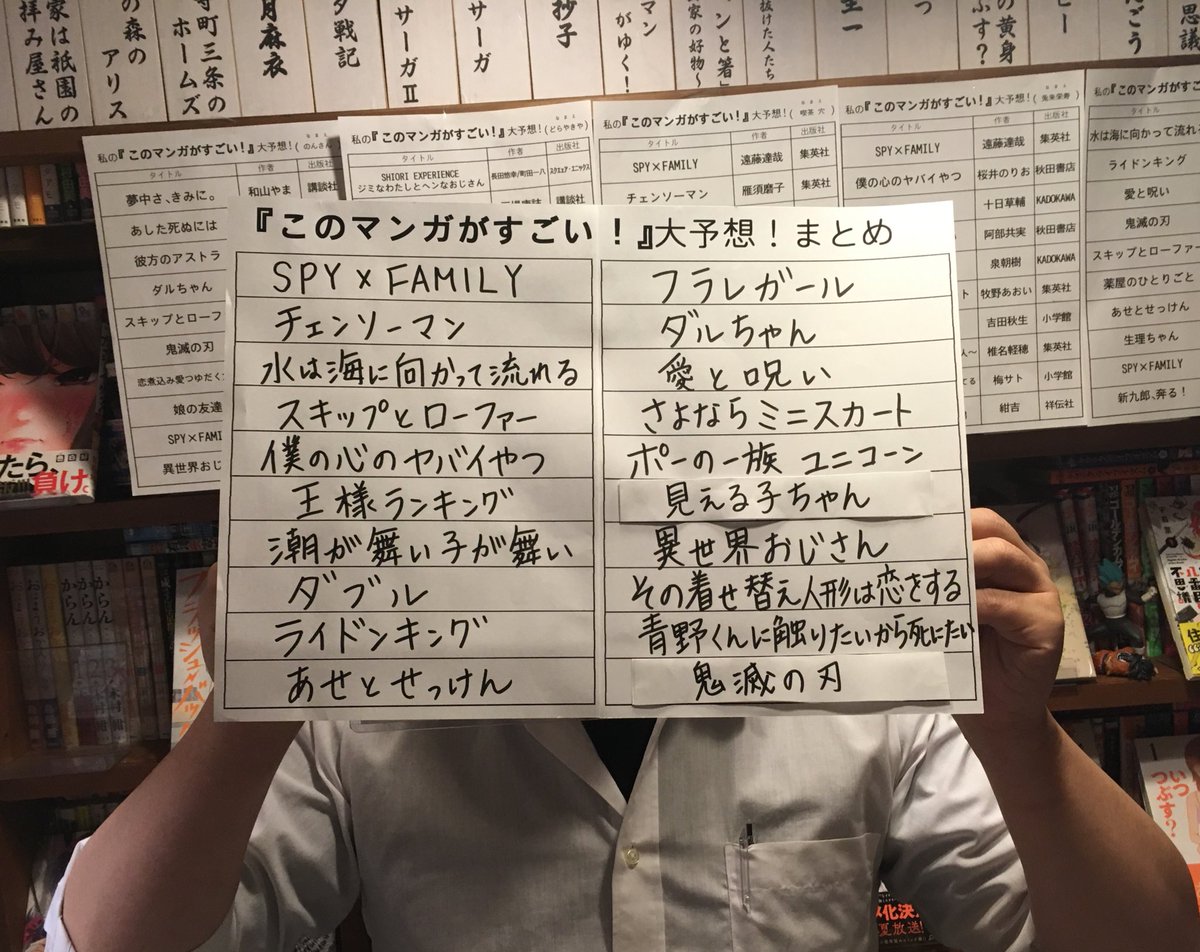 家は祇園の
拝み屋さん
の森の
アリス
寺町三条の
ホームズ
月麻衣
夕戦記
サーガⅡ
サーガ
抄子
マン
がゆく!
家の好物〜
ンと箸」
抜けた人たち
圭一
つ
の黄身
ぶす?
ビー
たごう
思議
私の『このマンガがすごい!』大予想!(のんさん
なまえ
タイトル 作者 出版社
夢中さ、きみに。 和山やま 講談社
あした死ぬには
彼方のアストラ
ダルちゃん
スキップとローフ
鬼滅の刃
恋煮込み愛つゆだく
娘の友達
SPY×FAMI
異世界おじ
私の『このマンガがすごい!』大予想!(どらやきや)
なまえ
タイトル 作者 出版社
SHIORI EXPERIENCE
ジミなわたしとヘンなおじさん 長田悠幸/町田一八 スクエア・エニックス
講談社
私の『このマンガがすごい!』大予想!(喫茶 穴)
なまえ
タイトル 作者 出版社
SPY×FAMILY 遠藤達哉 集英社
チェンソーマン 雁須磨子 集英社
私の『このマンガがすごい!』大予想!(兎来栄寿)
なまえ
タイトル 作者 出版社
SPY×FAMILY 遠藤達哉 集英社
僕の心のヤバイやつ 桜井のりお 秋田書店
十日草輔 KADOKAWA
阿部共実 秋田書店
泉朝樹 KADOKAWA
牧野あおい 集英社
吉田秋生 小学館
人〜 椎名軽穂 集英社
てる 梅サト 小学館
紺吉 祥伝社
私の『このマンガがす
タイトル
水は海に向かって流れ
ライドンキング
愛と呪い
鬼滅の刃
スキップとローファー
薬屋のひとりごと
あせとせっけん
生理ちゃん
SPY×FAMILY
新九郎、奔る!
『このマンガがすごい!』大予想!まとめ
SPY×FAMILY
チェンソーマン
水は海に向かって流れる
スキップとローファー
僕の心のヤバイやつ
王様ランキング
潮が舞い子が舞い
ダブル
ライドンキング
あせとせっけん
フラレガール
ダルちゃん
愛と呪い
さよならミニスカート
ポーの一族 ユニコーン
見える子ちゃん
異世界おじさん
その着せ替え人形は恋をする
青野くんに触りたいから死にたい
鬼滅の刃
たら、
負け。
からん
からん
いつ
つぶす?
メ化決
夏放送!